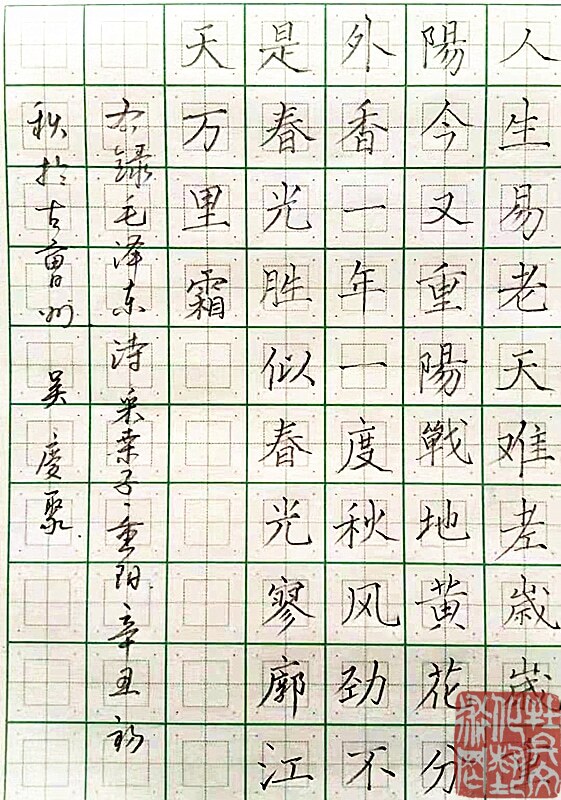 人生易老天难老歲歲重
陽今又重陽戰地黄花分
外香一年一度秋风劲不
是春光胜似春光寥廓江
天万里霜
右録毛泽东诗采桑子重阳辛丑初
秋於古曹州 吴庆聚